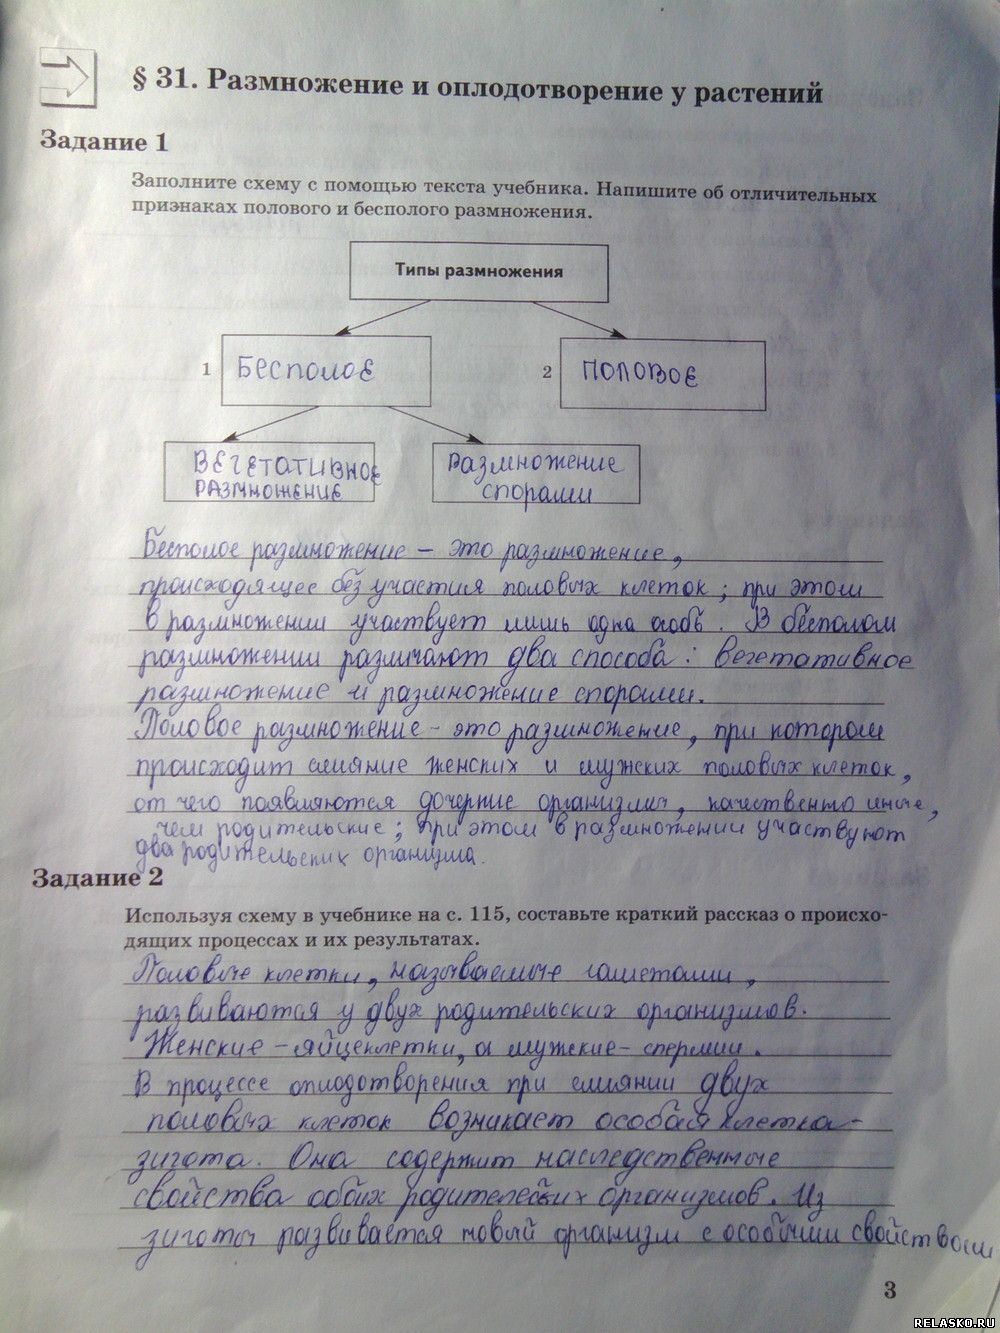 § 31. Размножение и оплодотворение у растений
Задание 1
Заполните схему с помощью текста учебника. Напишите об отличительных
признаках полового и бесполого размножения.
Типы размножения
1 Бесполое
2 половое
Вегетативное
размножение
размножение
спорами
Бесполое размножение – это размножение,
происходящее без участия половых клеток; при этом
в размножении участвует лишь одна особь. В бесполом
размножении различают два способа: вегетативное
размножение и размножение спорами.
Половое размножение – это размножение, при котором
происходит слияние женских и мужских половых клеток,
от чего появляются дочерние организмы, качественно иные,
чем родительские; при этом в размножении участвуют
два родительских организма.
Задание 2
Используя схему в учебнике на с. 115, составьте краткий рассказ о происхо-
дящих процессах и их результатах.
Половые клетки, называемые гаметами,
развиваются у двух родительских организмов.
Женские – яйцеклетки, а мужские – спермии.
В процессе оплодотворения при слиянии двух
половых клеток возникает особая клетка –
зигота. Она содержит наследственные
свойства обоих родительских организмов. Из
зиготы развивается новый организм с особыми свойствами
3
RELASKO.RU